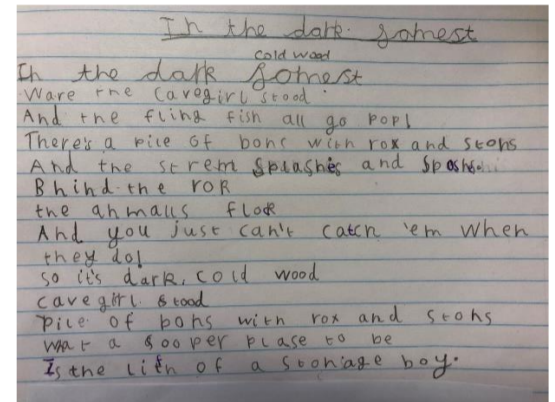 In the dark fomest
cold wood
In the dark fomest
Ware the cavegirl stood
And the fling fish all go pop!
There's a pile of bons with rox and stons
And the strem splashes and
Bhind the rok
the anmalls flok
And you just can't catch 'em when
they do!
so it's dark, cold wood
cavegirl stood
Pile of bons with rox and stons
wat a sooper plase to be
Is the lifh of a stoniage boy.